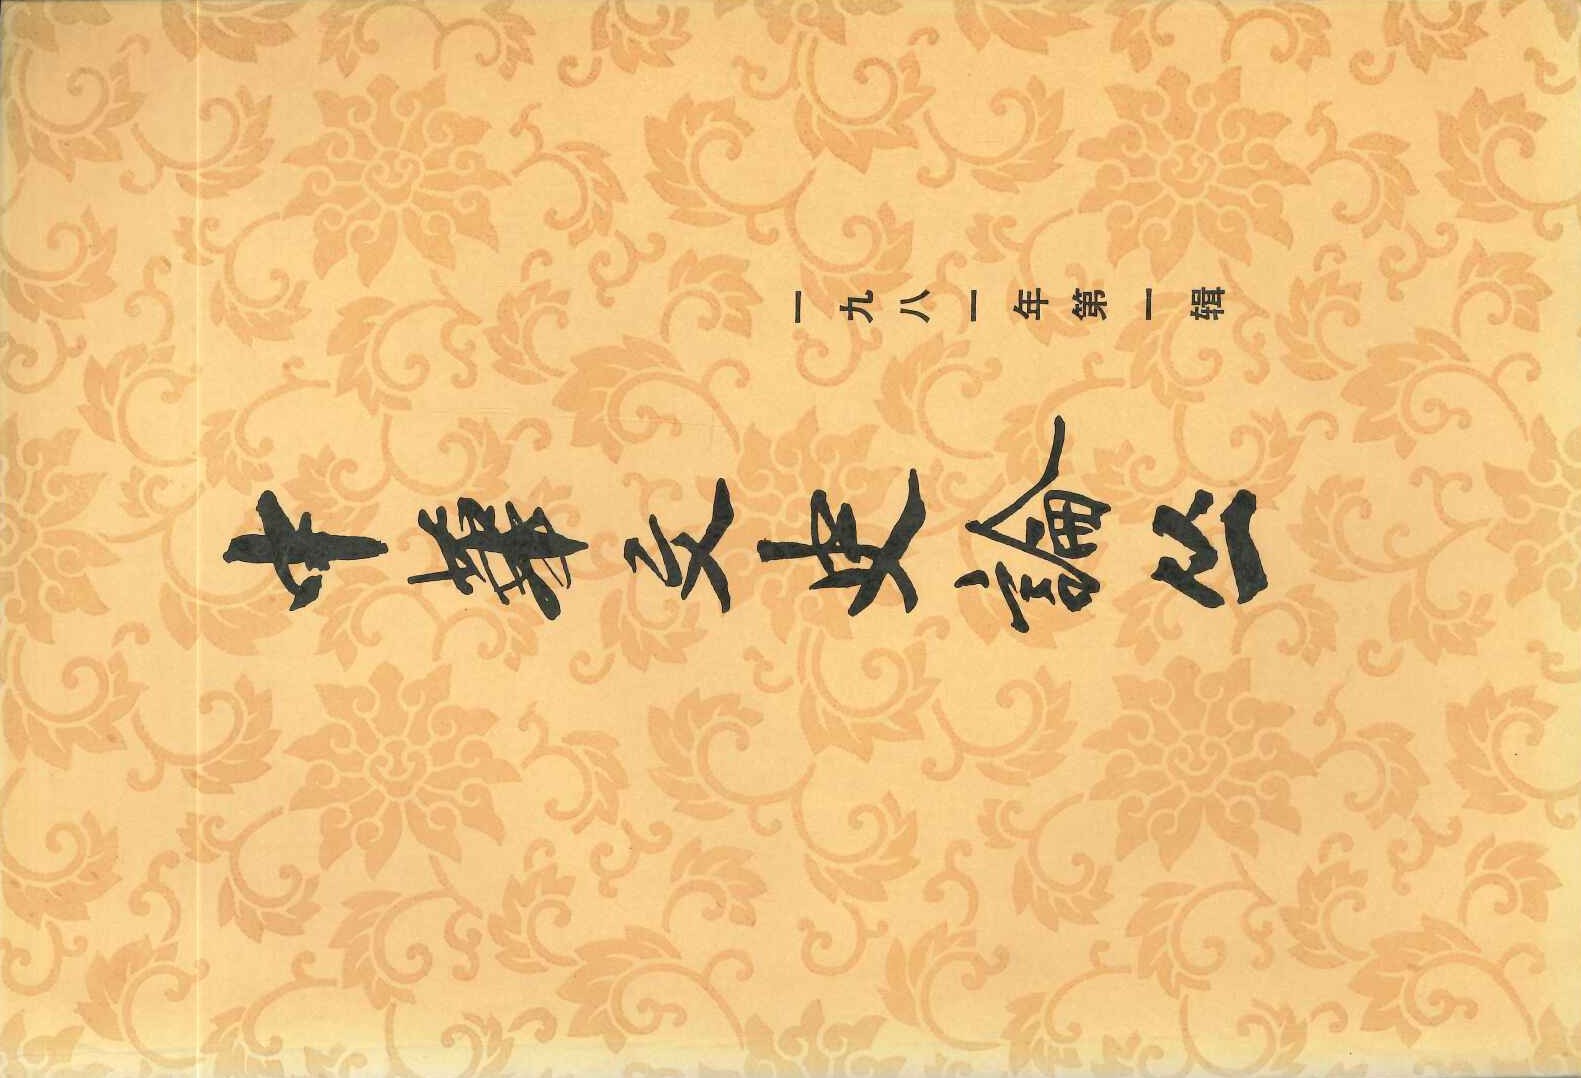 中華文史論丛
一九八一年第一辑